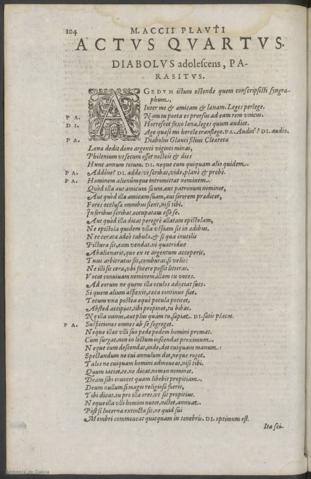 104
M. ACCII PLAVTI
ACTVS QVARTVS.
DIABOLVS adolescens, PA-
RASITVS.
AGEDVM istum ostende quem conscripsisti syngra-
phum.
Inter me & amicam & lenam. Leges perlege.
PA. Nam tu poeta es prorsus ad eam rem vnicus.
DI. Horrescet faxo lena, leges quum audiet.
Age quæso mi hercle translege. PA. Audin'? DI. audio.
PA. Diabolus Glauci filius Cleæretæ
Lenæ dedit dono argenti viginti minas,
Philenium vt secum esset noctes & dies
Hunc annum totum. DI. neque cum quiquam alio quidem.
PA. Addone? DI. adde: vt scribas, vide, planè & probè.
PA. Hominem alienum ne intromittat neminem.
Quòd illa aut amicum suum, aut patronum nominet,
Aut quòd illa amicam suam, aut amatorem prædicet,
Fores occlusæ omnibus sient, nisi tibi.
In foribus scribat, occupatam esse se.
Aut quòd illa dicat peregrè allatam epistolam,
Ne epistola quidem vlla vt siet in ædibus,
Nec cerata adeò tabula, & si qua inutilis
Pictura sit, eam vendat. ni quatriduo
Abalienarit, quo ex te argentum acceperit,
Tuus arbitratus sit, comburas, si velis:
Ne illi sit cera, vbi facere possit literas.
Vocet conuiuam neminem illa, tu voces.
Ad eorum ne quem illa oculos adiiciat suos.
Si quem alium aspexit, cæca continuò siet.
Tecum vna postea æquè pocula potitet,
Abs te accipiat, tibi propinet, tu bibas.
Ne illa minus, aut plus quàm tu, sapiat. DI. satis placet.
PA. Suspiciones omnes ab se segreget.
Neque illæc vlli suo pede pedem homini premat.
Cum surgat, neu in lectum inscendat proximum.
Neque cum descendat, inde det cuiquam manum.
Spectandum ne cui annulum det, neque roget.
Talos ne cuiquam homini admoueat, nisi tibi.
Quum iaciat, te, ne dicat, nomen nominet,
Deam sibi inuocet quam libebit propitiam.
Deum nullum, si magis religiosa fuerit,
Tibi dicat, tu pro illa ores vt sit propitius.
Neque illa vlli homini nutet, nictet, annuat.
Post si lucerna extincta sit, ne quid sui
Membri commoueat quicquam in tenebris. DI. optimum est.
Ita sci-